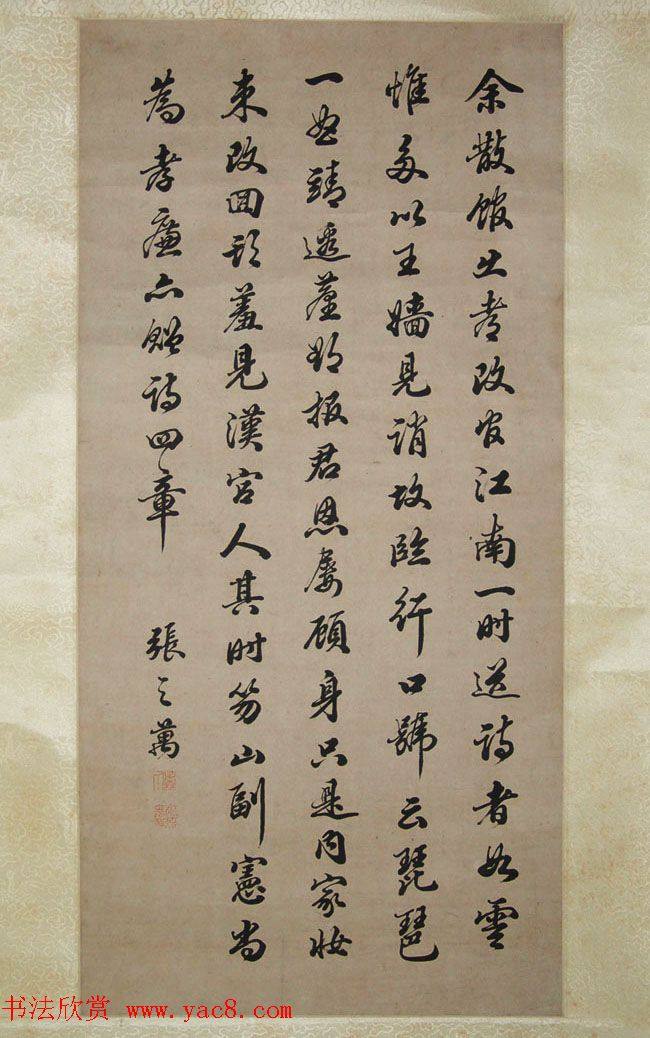 余散館出都改官江南一時送詩者如雲
惟多以王嬙見誚故臨行口號云琵琶
一曲靖邊塵欲報君恩屢顧身只是內家妝
束改回頭羞見漢宮人其時笏山副憲尚
為孝廉亦贈詩四章
張之萬
书法欣赏 www.yac8.com